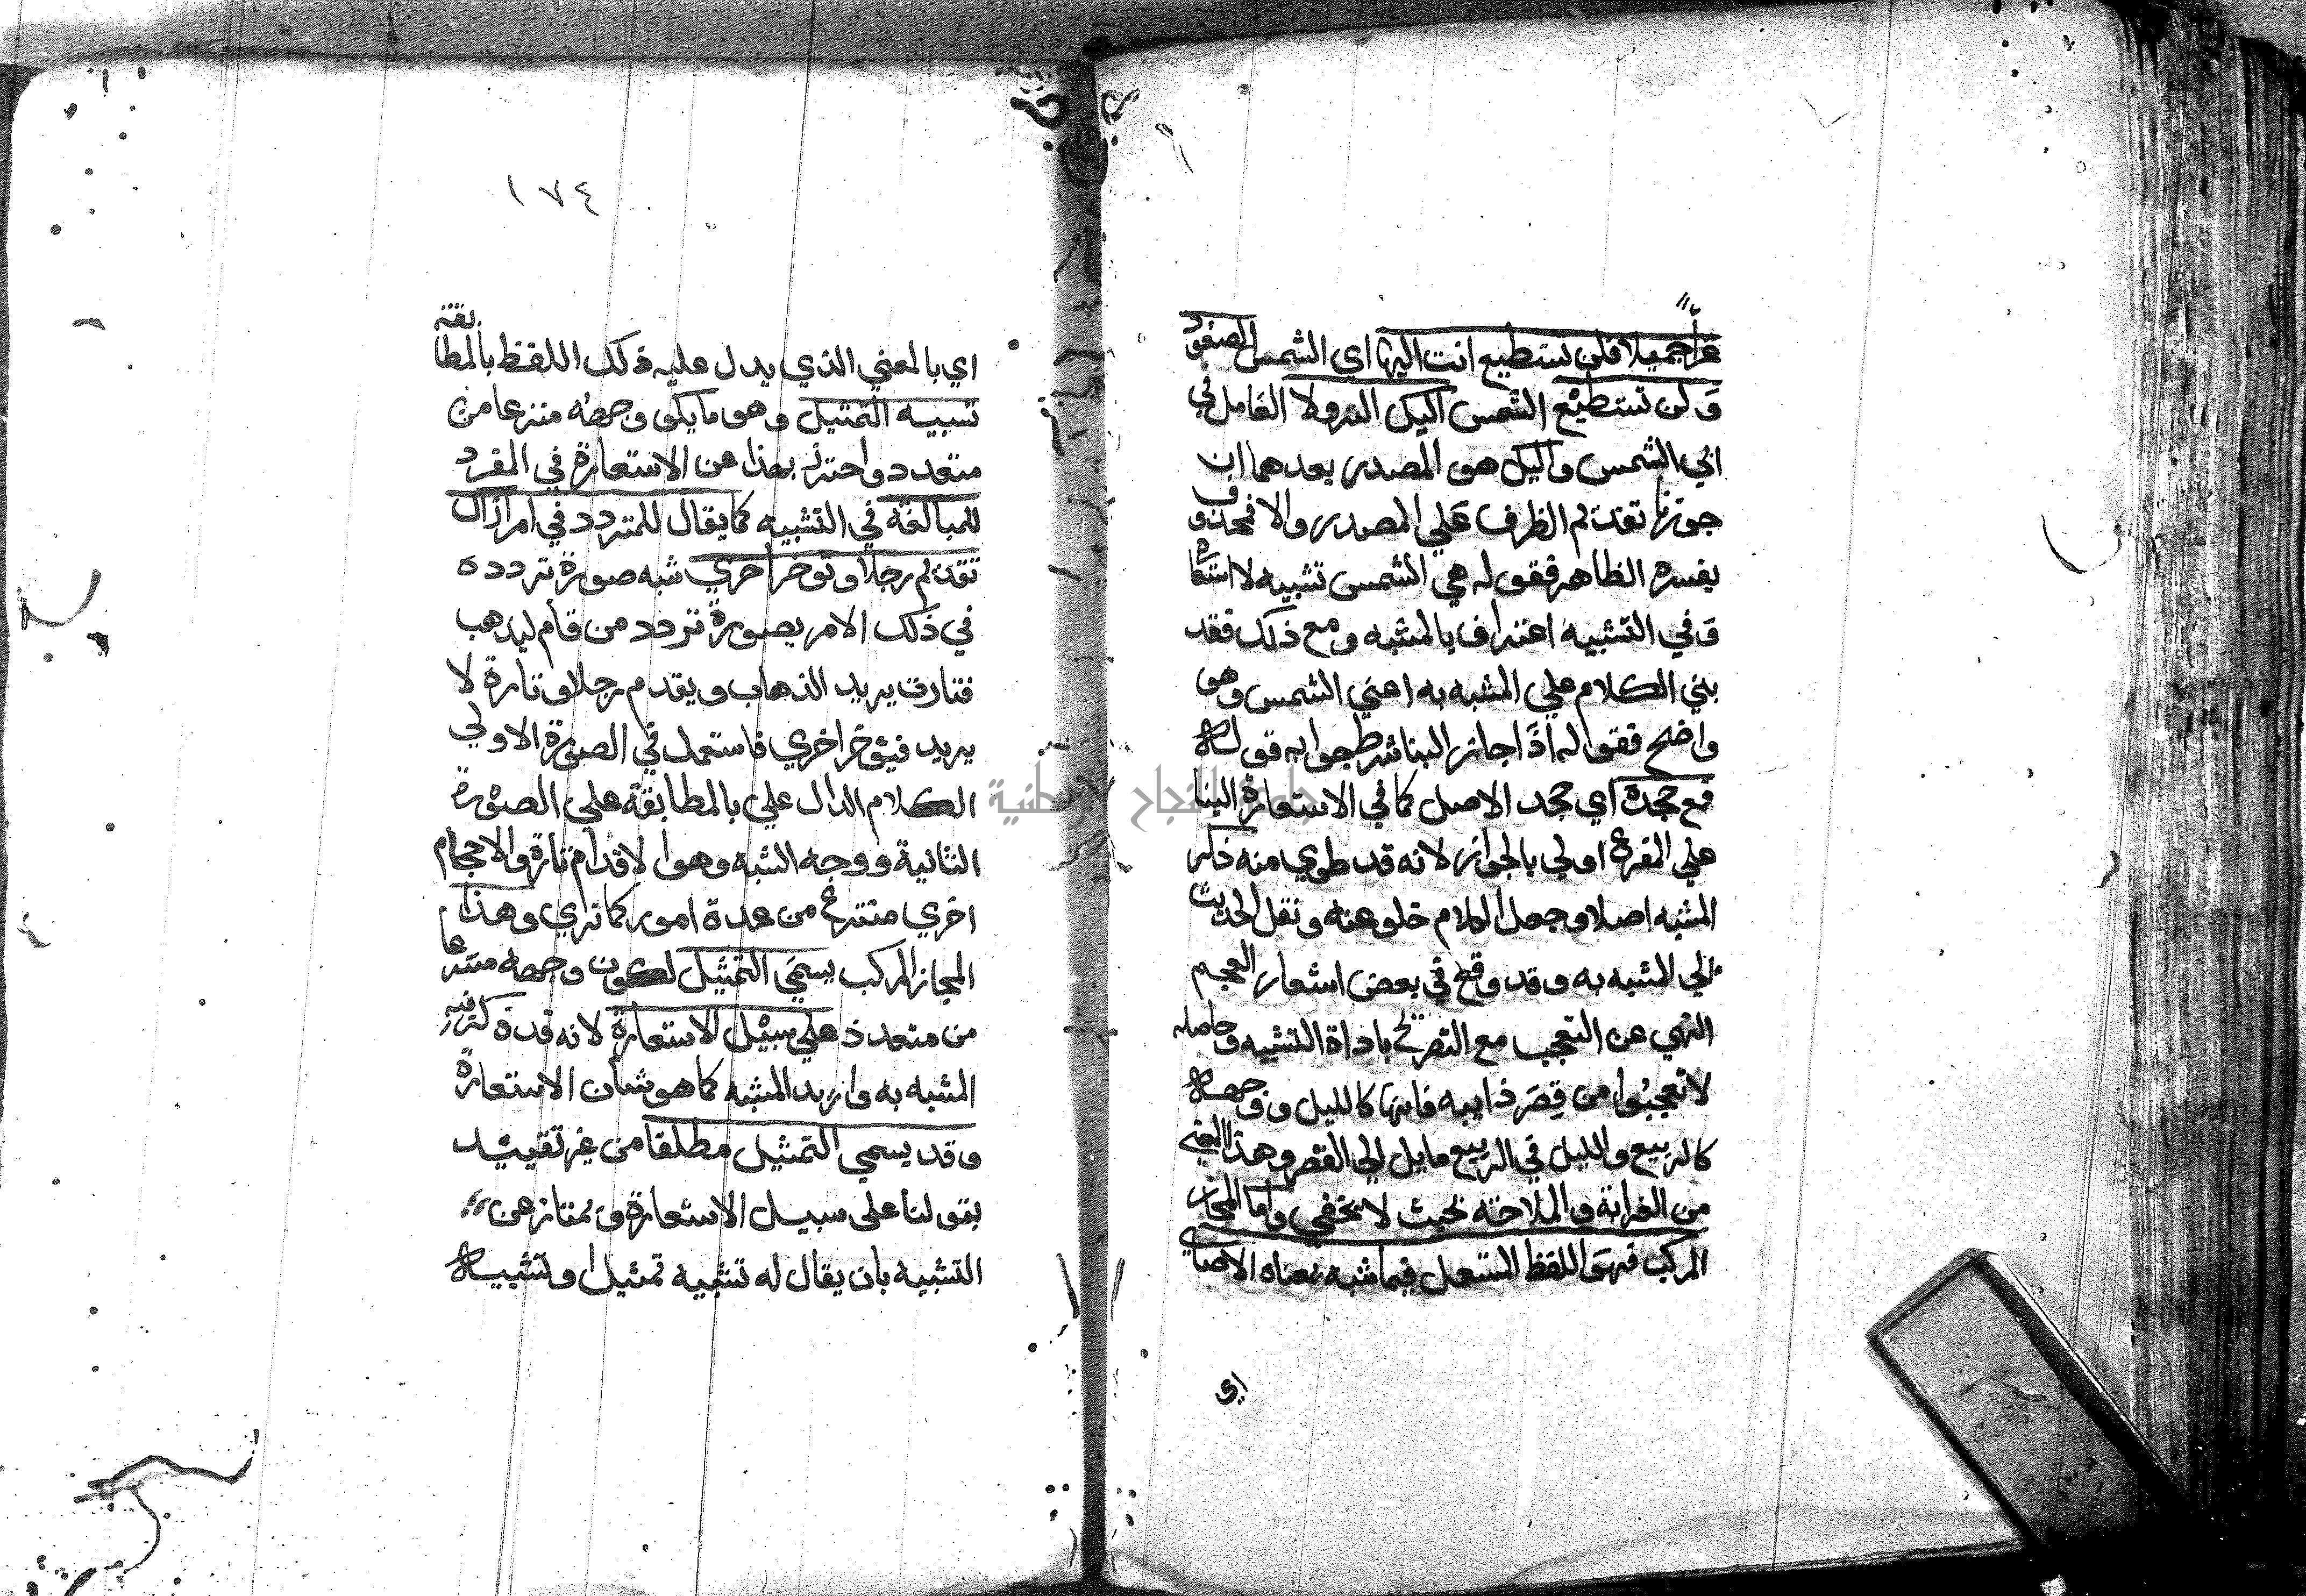 عزاء جميلا فلن تستطيع انت اليها اي الشمس الصعود
ولن تستطيع الشمس اليك النزولا العامل في
الي الشمس واليك هو المصدر بعدهما ان
جوزنا تقديم الظرف علي المصدر والا فمحذوف
يفسره الظاهر فقوله هي الشمس تشبيه لا استعارة
وفي التشبيه اعتراف بالمشبه ومع ذلك فقد
بني الكلام علي المشبه به اعني الشمس وهو
واضح فقوله اذا جاز البنا شرط جوابه قوله
فمع جحده اي جحد الاصل كما في الاستعارة البنا
علي الفرع اولي بالجواز لانه قد طوي منه ذكر
المشبه اصلا وجعل الكلام خلو عنه ونقل الحديث
الي المشبه به وقد وقع في بعض اشعار العجم
النهي عن التعجب مع التصريح باداة التشبيه وحاصله
لا تعجبوا من قصر ذوايبه فانها كالليل ووجهه
كالربيع والليل في الربيع مايل الي القصر وهذا المعني
من الغرابة والملاحة بحيث لا يخفي واما المجاز
المركب فهو اللفظ المستعمل فيما شبه بمعناه الاصلي
اي
١٧٤
اي بالمعني الذي يدل عليه ذلك اللفظ بالمطابقة
تشبيه التمثيل وهو ما يكون وجهه منتزعا من
متعدد واحترز بهذا عن الاستعارة في المفرد
للمبالغة في التشبيه كما يقال للمتردد في امر اراك
تقدم رجلا وتوخر اخري شبه صورة تردده
في ذلك الامر بصورة تردد من قام ليذهب
فتارة يريد الذهاب ويقدم رجلا وتارة لا
يريد فيؤخر اخري فاستعمل في الصورة الاولي
الكلام الدال علي بالمطابقة علي الصورة
الثانية ووجه الشبه وهو الاقدام تارة والاحجام
اخري منتزع من عدة امور كما تري وهذا
المجاز المركب يسمي التمثيل لكون وجهه منتزعا
من متعدد علي سبيل الاستعارة لانه قد ذكر فيه
المشبه به واريد المشبه كما هو شان الاستعارة
وقد يسمي التمثيل مطلقا من غير تقييد
بقولنا علي سبيل الاستعارة ويمتاز عن
التشبيه بان يقال له تشبيه تمثيل او تشبيه